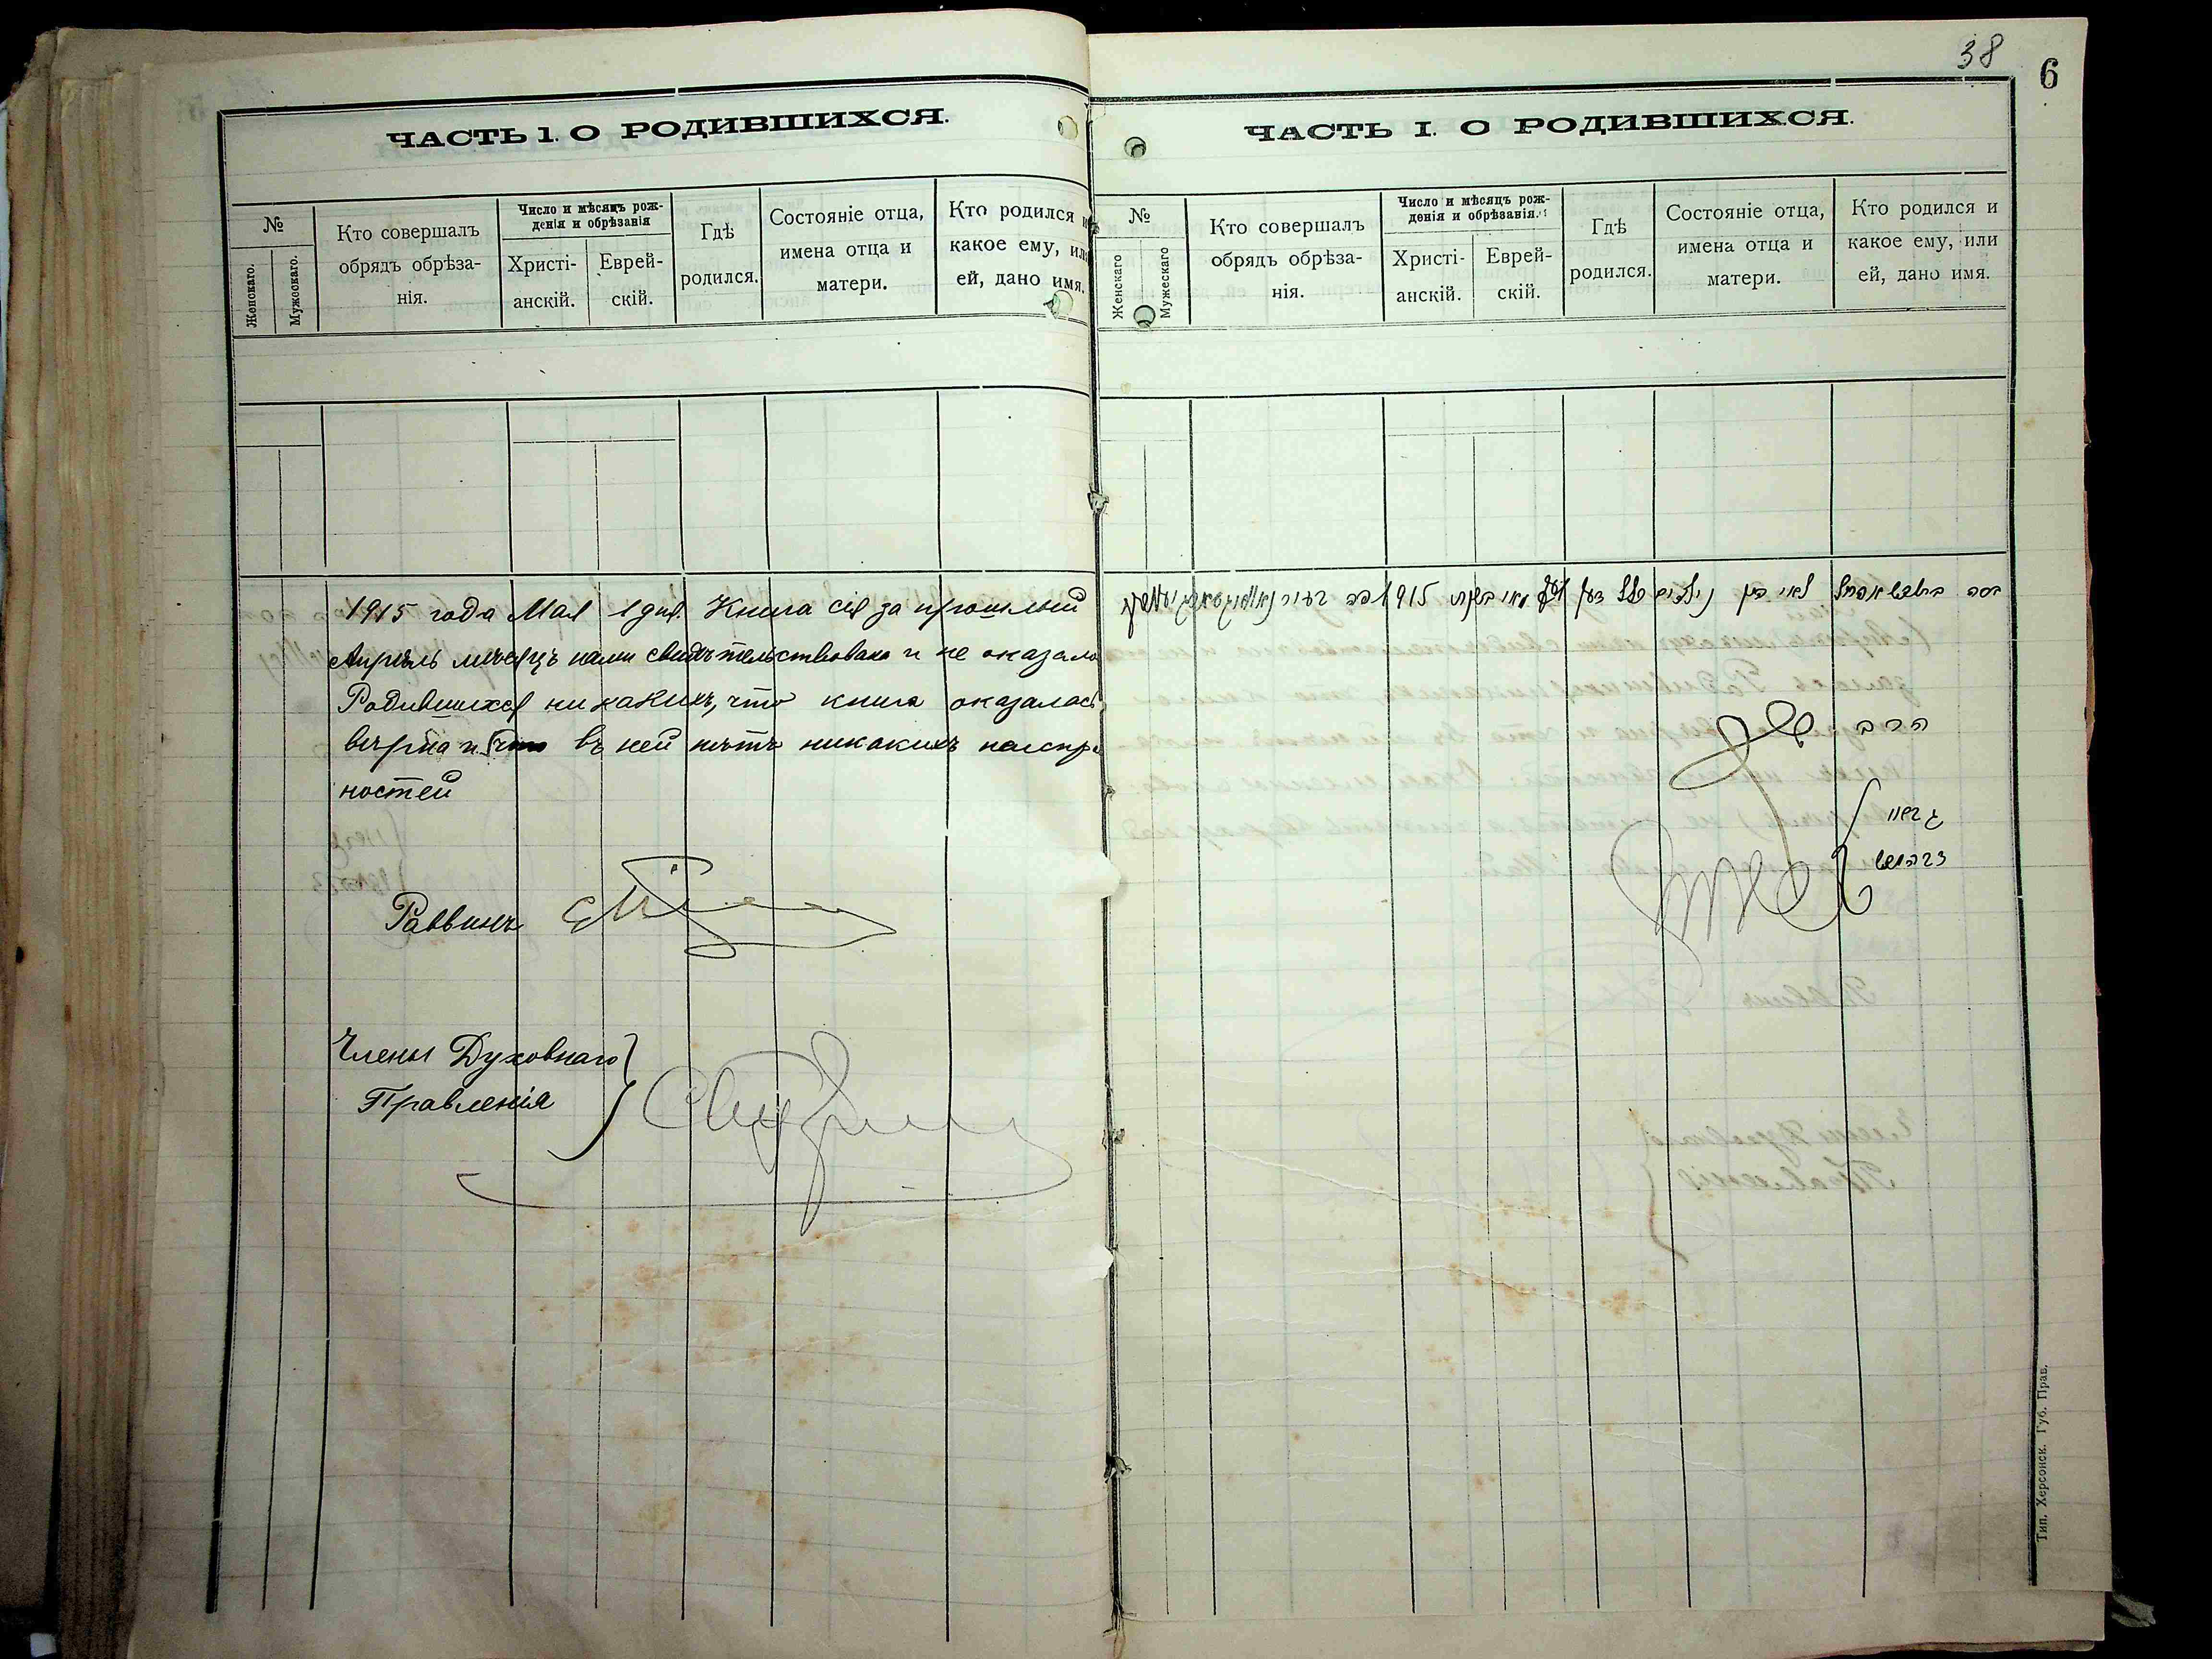 ЧАСТЬ 1. О РОДИВШИХСЯ.
№
Женскаго.
Мужескаго.
Кто совершалъ
обрядъ обрѣза-
нія.
Число и мѣсяцъ рож-
денія и обрѣзанія
Христі-
анскій.
Еврей-
скій.
Гдѣ
родился.
Состояніе отца,
имена отца и
матери.
Кто родился и
какое ему, или
ей, дано имя.
1915 года Мая 1 дня. Книга сія за прошлый
Апрѣль мѣсяцъ нами свидѣтельствована и не оказало
Родившихся никакихъ, что книга оказалась
вѣрна и что въ ней нѣтъ никакихъ
ностей
Раввинъ
Члены Духовнаго
Правленія
38
6
ЧАСТЬ I. О РОДИВШИХСЯ.
№
Женскаго
Мужескаго
Кто совершалъ
обрядъ обрѣза-
нія.
Число и мѣсяцъ рож-
денія и обрѣзанія.
Христі-
анскій.
Еврей-
скій.
Гдѣ
родился.
Состояніе отца,
имена отца и
матери.
Кто родился и
какое ему, или
ей, дано имя.
1915
הרב
Тип. Херсонск. Губ. Прав.